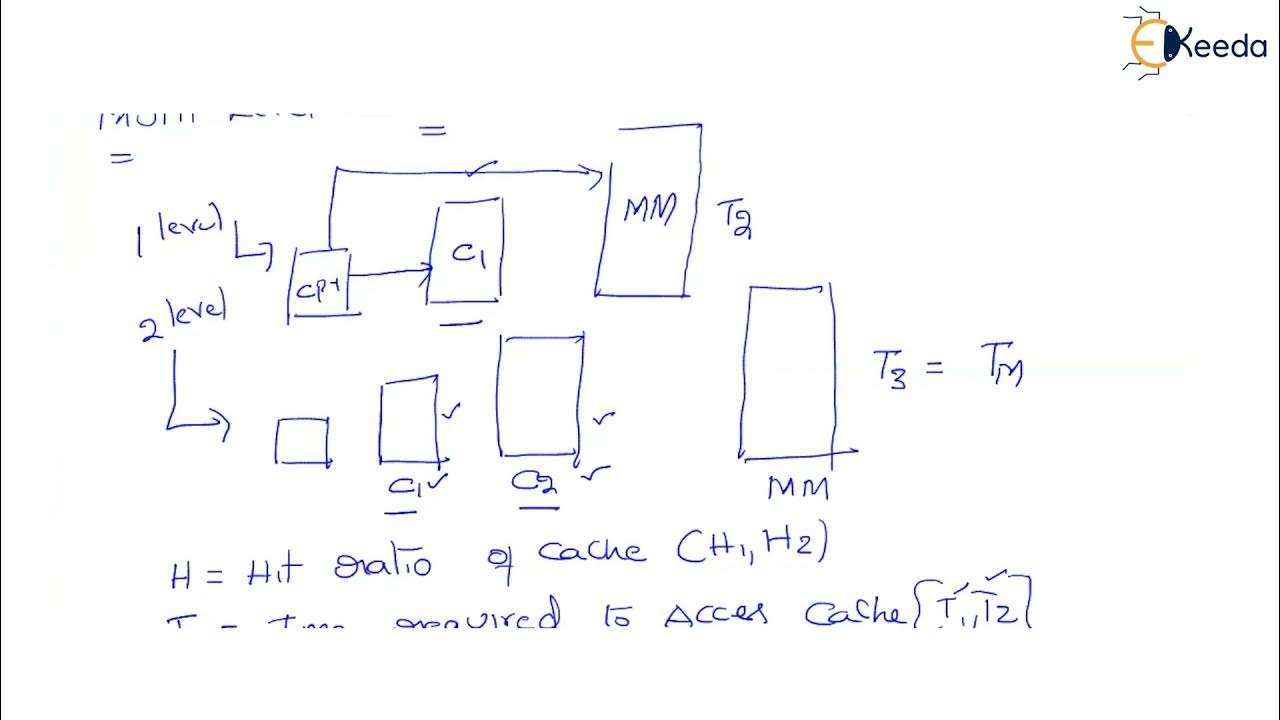 EKeeda
=
=
1 level
MM
T2
C1
CPU
2 level
T3 = TM
C1
C2
MM
H = Hit ratio of cache (H1, H2)
T = time required to Acces Cache [T1, T2]